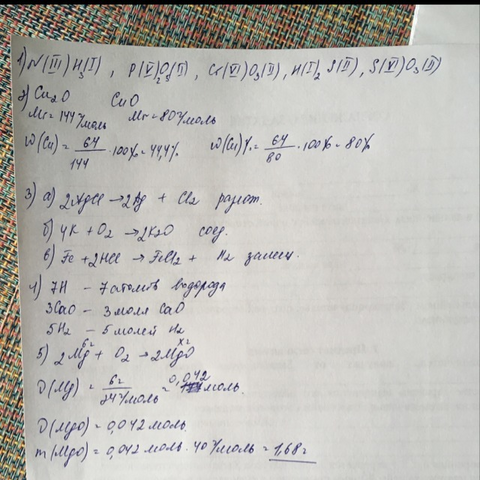 1) N(III)H₃(I) , P(V)₂O₅(II) , Cr(VI)O₃(II) , H(I)₂S(II) , S(VI)O₃(II)
2) Cu₂O CuO
Mr = 144 г/моль Mr = 80 г/моль
W(Cu) = 64/144 · 100% = 44,4% W(Cu)% = 64/80 · 100% = 80%
3) а) 2AgCl → 2Ag + Cl₂ разлож.
б) 4K + O₂ → 2K₂O соед.
в) Fe + 2HCl → FeCl₂ + H₂ замещ.
4) 7H – 7 атомов водорода
3CaO – 3 моля CaO
5H₂ – 5 молей H₂
5) 2Mg + O₂ → 2MgO 6г xг
ʋ(Mg) = 6г/24г/моль = 0,042 моль.
ʋ(MgO) = 0,042 моль
m(MgO) = 0,042 моль · 40 г/моль = 1,68г